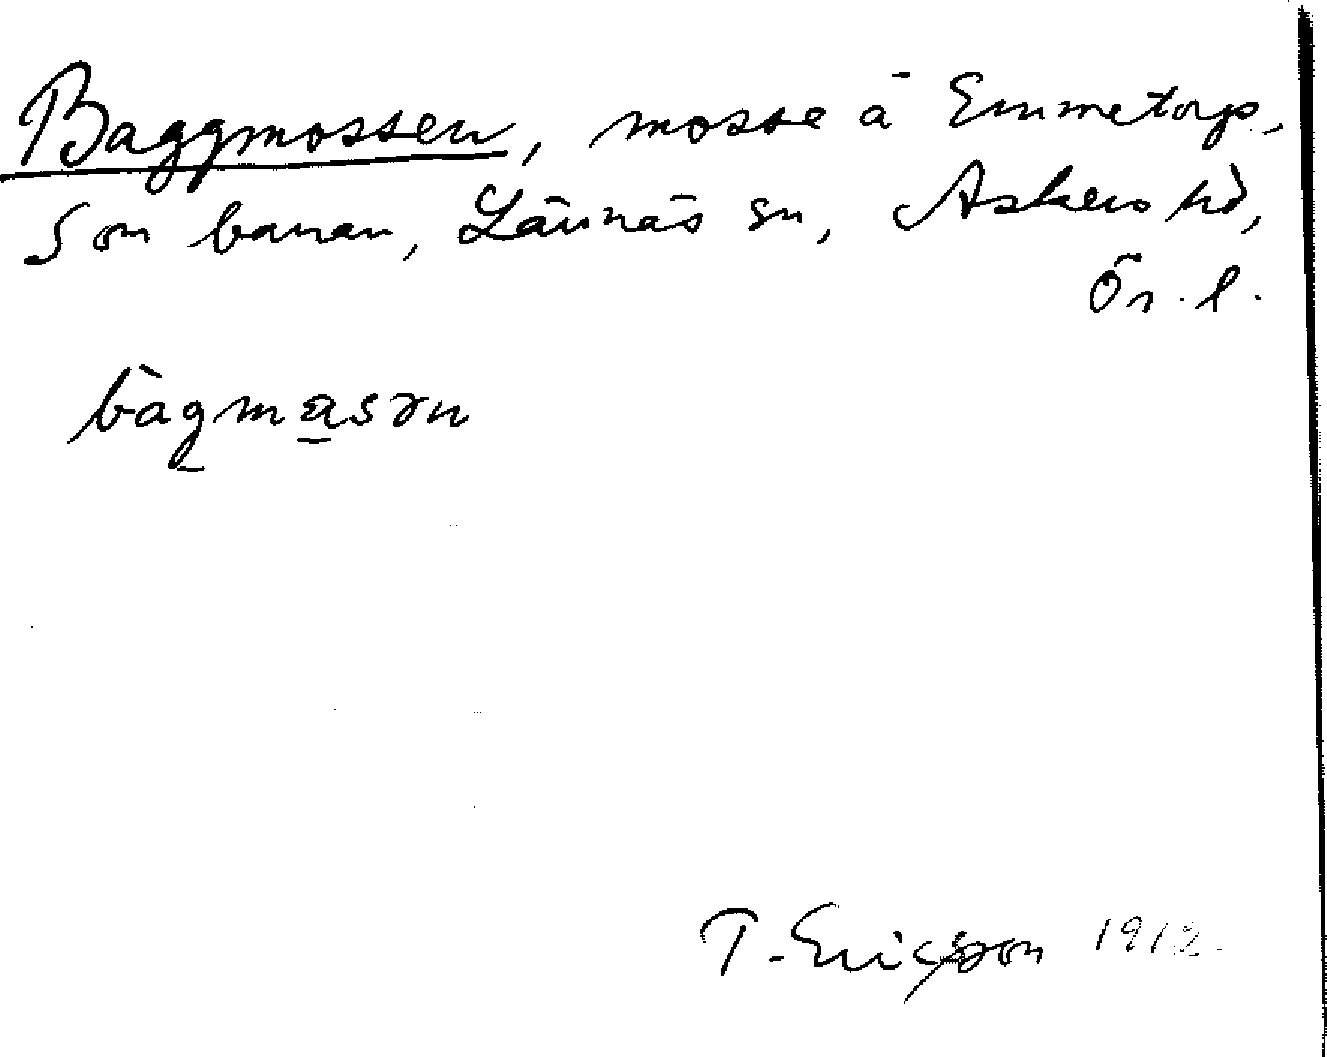 Baggmossen, mosse å Emmetorp,
S om banan, Lännäs sn, Askers hd,
Ör. l.
bàgmasən
T. Ericsson 1912